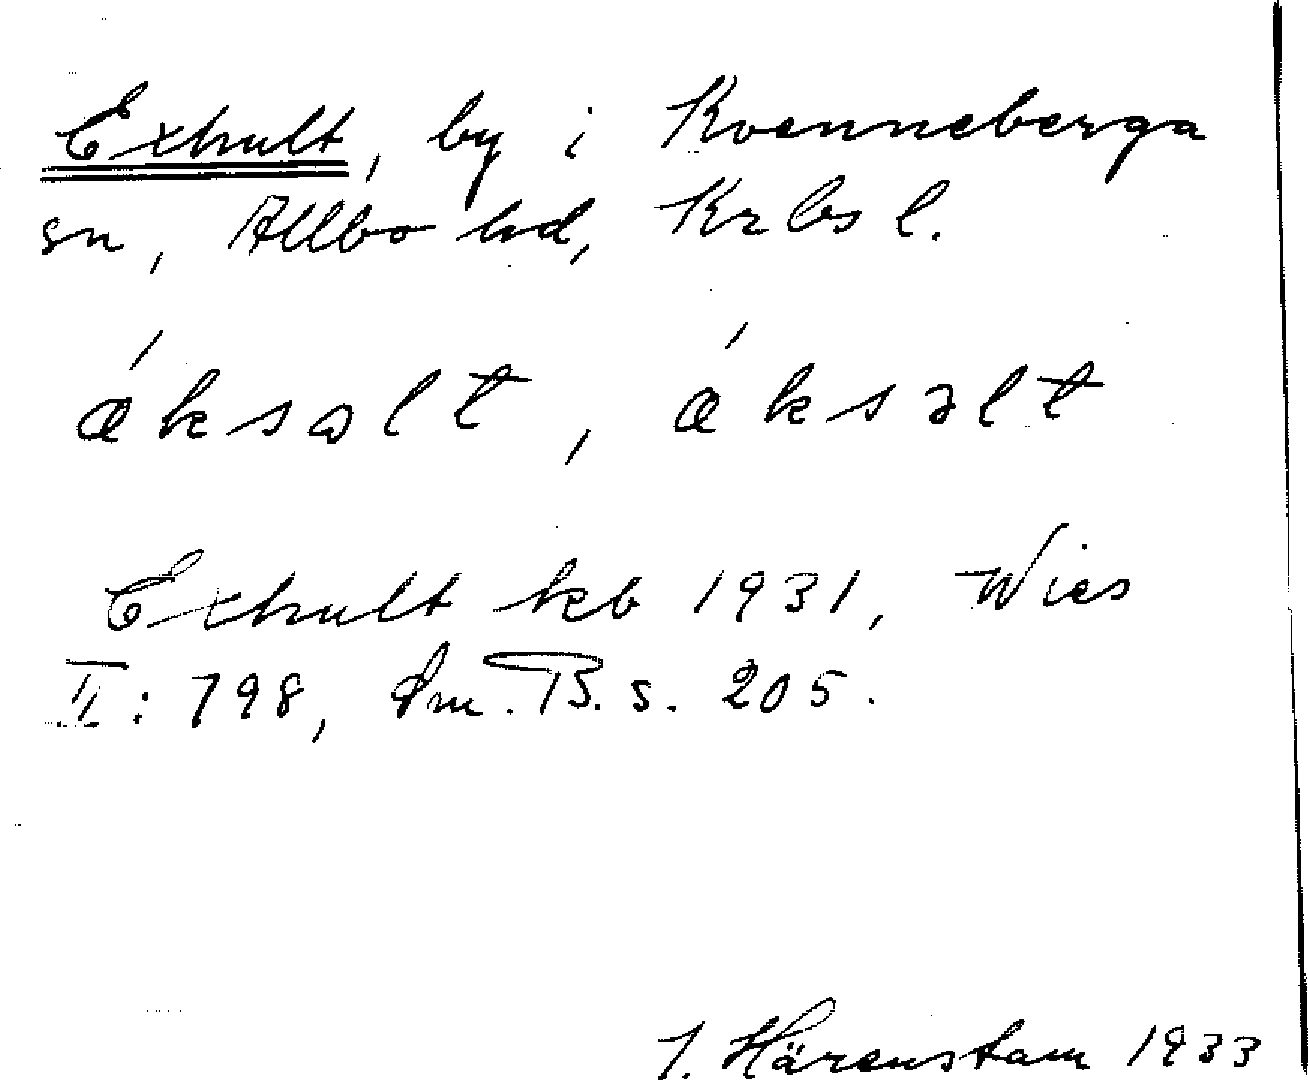 Exhult, by i Kvenneberga
sn, Allbo hd, Krbs l.
ǽksɷlt, ǽksəlt
Exhult kb 1931, Wies
II: 798, Sm. B. s. 205.
J. Härenstam 1933